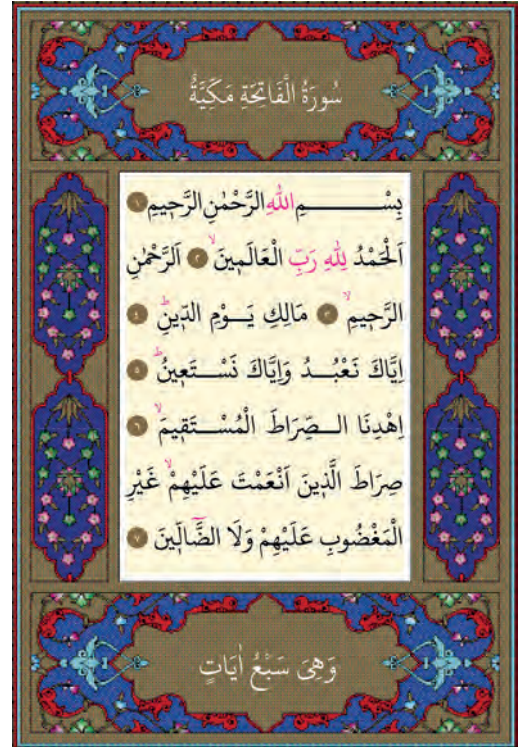 سُورَةُ الْفَاتِحَةِ مَكِّيَّةٌ
بِسْــــــــمِ اللّٰهِ الرَّحْمٰنِ الرَّحٖيمِ ١
اَلْحَمْدُ لِلّٰهِ رَبِّ الْعَالَمٖينَۙ ٢ اَلرَّحْمٰنِ
الرَّحٖيمِۙ ٣ مَالِكِ يَــوْمِ الدّٖينِؕ ٤
اِيَّاكَ نَعْبُــدُ وَاِيَّاكَ نَسْــتَعٖينُؕ ٥
اِهْدِنَا الــصِّرَاطَ الْمُسْــتَقٖيمَۙ ٦
صِرَاطَ الَّذٖينَ اَنْعَمْتَ عَلَيْهِمْۙ غَيْرِ
الْمَغْضُوبِ عَلَيْهِمْ وَلَا الضَّٓالّٖينَ ٧
وَهِيَ سَبْعُ اٰيَاتٍ